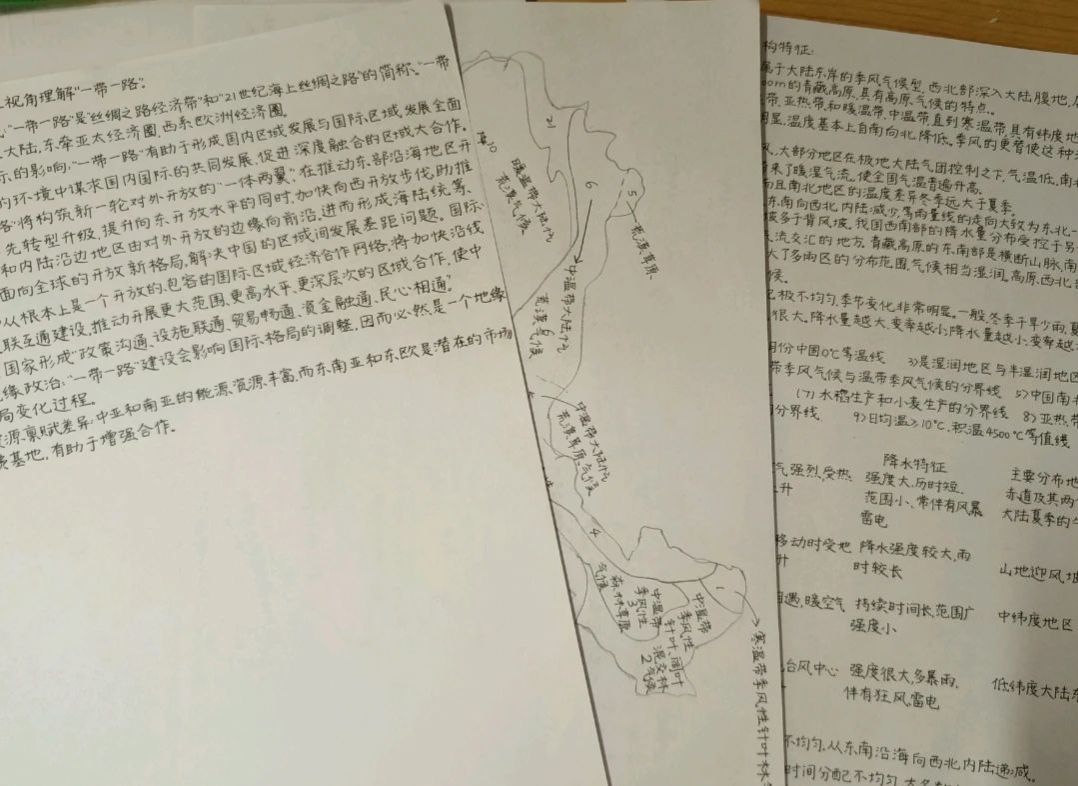 视角理解“一带一路”.
“一带一路”是“丝绸之路经济带”和“21世纪海上丝绸之路”的简称.“一带
大陆,东牵亚太经济圈,西系欧洲经济圈.
的影响,“一带一路”有助于形成国内区域发展与国际区域发展全面
的环境中谋求国内国际的共同发展,促进深度融合的区域大合作.
将构筑新一轮对外开放的“一体两翼”:在推动东部沿海地区开
先转型升级,提升向东开放水平的同时,加快向西开放步伐,助推
和内陆沿边地区由对外开放的边缘向前沿,进而形成海陆统筹、
面向全球的开放新格局,解决中国的区域间发展差距问题。国际:
从根本上是一个开放的,包容的国际区域经济合作网络,将加快沿线
联互通建设,推动开展更大范围、更高水平、更深层次的区域合作,使中
国家形成“政策沟通、设施联通、贸易畅通、资金融通、民心相通”.
缘政治:“一带一路”建设会影响国际格局的调整,因而必然是一个地缘
局变化过程.
源禀赋差异:中亚和南亚的能源资源丰富,而东南亚和东欧是潜在的市场
基地,有助于增强合作。
21
6
5
暖温带大陆性
荒漠气候
荒漠草原
中温带大陆性
荒漠气候
中温带大陆性
荒漠草原气候
4
森林草原
气候
中温带
季风性
3
中温带
季风性
针叶、阔叶
混交林
气候
2
1
寒温带季风性针叶林
构特征:
属于大陆东岸的季风气候型,西北部深入大陆腹地,
的青藏高原,具有高原气候的特点.
带、亚热带和暖温带、中温带直到寒温带,具有纬度地
明显,温度基本上自南向北降低.季风的更替使这种
风,大部分地区在极地大陆气团控制之下,气温低,南
来了暖湿气流,使全国气温普遍升高.
而且南北地区的温度差异冬季远大于夏季.
东南向西北内陆减少,等雨量线的走向大致为东北一
坡多于背风坡.我国西南部的降水量分布受控于另
气流交汇的地方.青藏高原的东南部是横断山脉,南
大了多雨区的分布范围,气候相当湿润.高原西北
候.
极不均匀,季节变化非常明显.一般冬季干旱少雨,夏
很大.降水量越大,变率越小;降水量越小,变率越
月份中国0℃等温线 3)是湿润地区与半湿润地区
带季风气候与温带季风气候的分界线 5)中国南
(7)水稻生产和小麦生产的分界线 8)亚热带
分界线 9)日均温≥10℃,积温4500℃等值线
降水特征 主要分布地
气强烈,受热 强度大,历时短, 赤道及其两
上升 范围小、常伴有风暴 大陆夏季的
雷电
移动时受地 降水强度较大,雨
升 时较长 山地迎风地
相遇,暖空气 持续时间长,范围广 中纬度地区
强度小
台风中心 强度很大,多暴雨, 低纬度大陆东
伴有狂风,雷电
不均匀,从东南沿海向西北内陆递减.
时间分配不均匀,大多